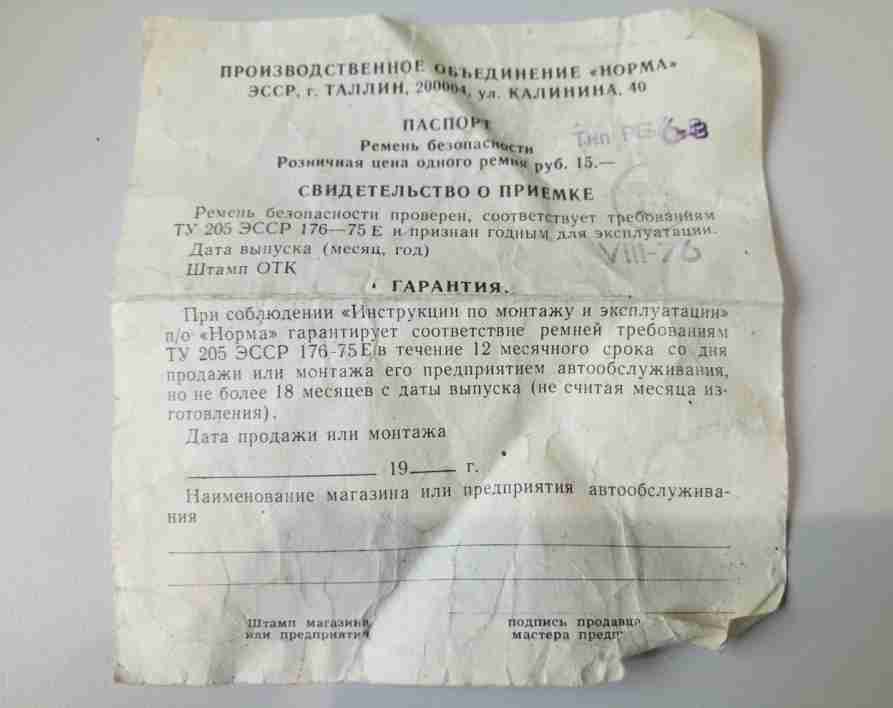 ПРОИЗВОДСТВЕННОЕ ОБЪЕДИНЕНИЕ «НОРМА»
ЭССР, г. ТАЛЛИН, 200004, ул. КАЛИНИНА, 40
ПАСПОРТ
Тип РБ
Ремень безопасности
Розничная цена одного ремня руб. 15.—
СВИДЕТЕЛЬСТВО О ПРИЕМКЕ
Ремень безопасности проверен, соответствует требованиям
ТУ 205 ЭССР 176—75 Е и признан годным для эксплуатации.
Дата выпуска (месяц, год) VIII-76
Штамп ОТК
ГАРАНТИЯ.
При соблюдении «Инструкции по монтажу и эксплуатации»
п/о «Норма» гарантирует соответствие ремней требованиям
ТУ 205 ЭССР 176-75 Е в течение 12 месячного срока со дня
продажи или монтажа его предприятием автообслуживания,
но не более 18 месяцев с даты выпуска (не считая месяца из-
готовления).
Дата продажи или монтажа
19 г.
Наименование магазина или предприятия автообслужива-
ния
Штамп магазина подпись продавца
или предприятия мастера предп